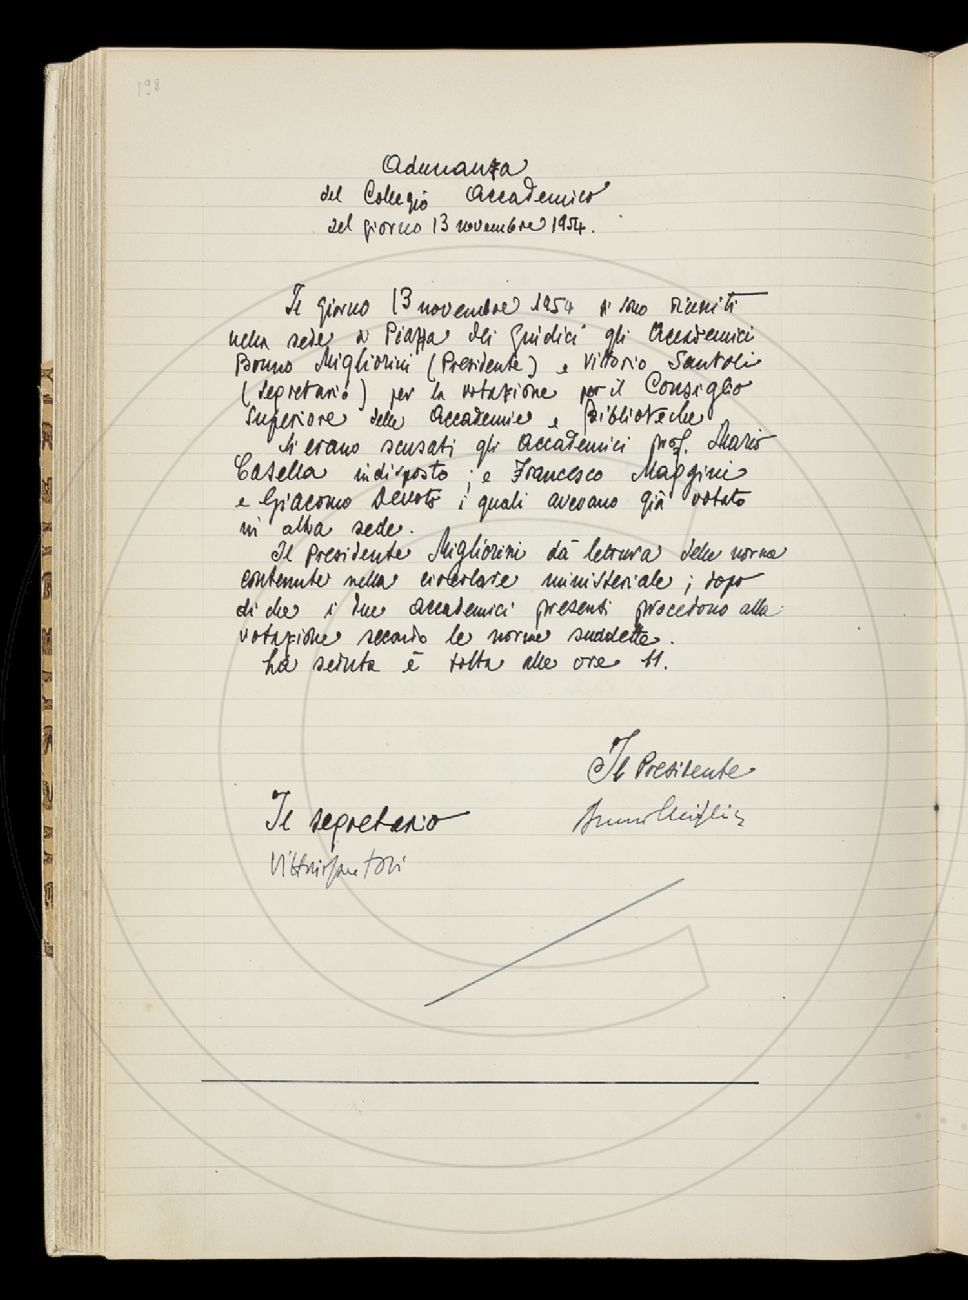 198
Adunanza
del Collegio Accademico
del giorno 13 novembre 1954.
Il giorno 13 novembre 1954 si sono riuniti
nella sede di Piazza dei Giudici gli Accademici
Bruno Migliorini (Presidente) e Vittorio Santoli
(Segretario) per la votazione per il Consiglio
Superiore delle Accademie e Biblioteche
Si erano scusati gli Accademici prof. Mario
Casella indisposto; e Francesco Maggini
e Giacomo Devoto i quali avevano già votato
in altra sede.
Il Presidente Migliorini dà lettura delle norme
contenute nella circolare ministeriale; dopo
di che i due accademici presenti procedono alla
votazione secondo le norme suddette.
La seduta è tolta alle ore 11.
Il Presidente
Bruno Migliorini
Il segretario
Vittorio Santoli